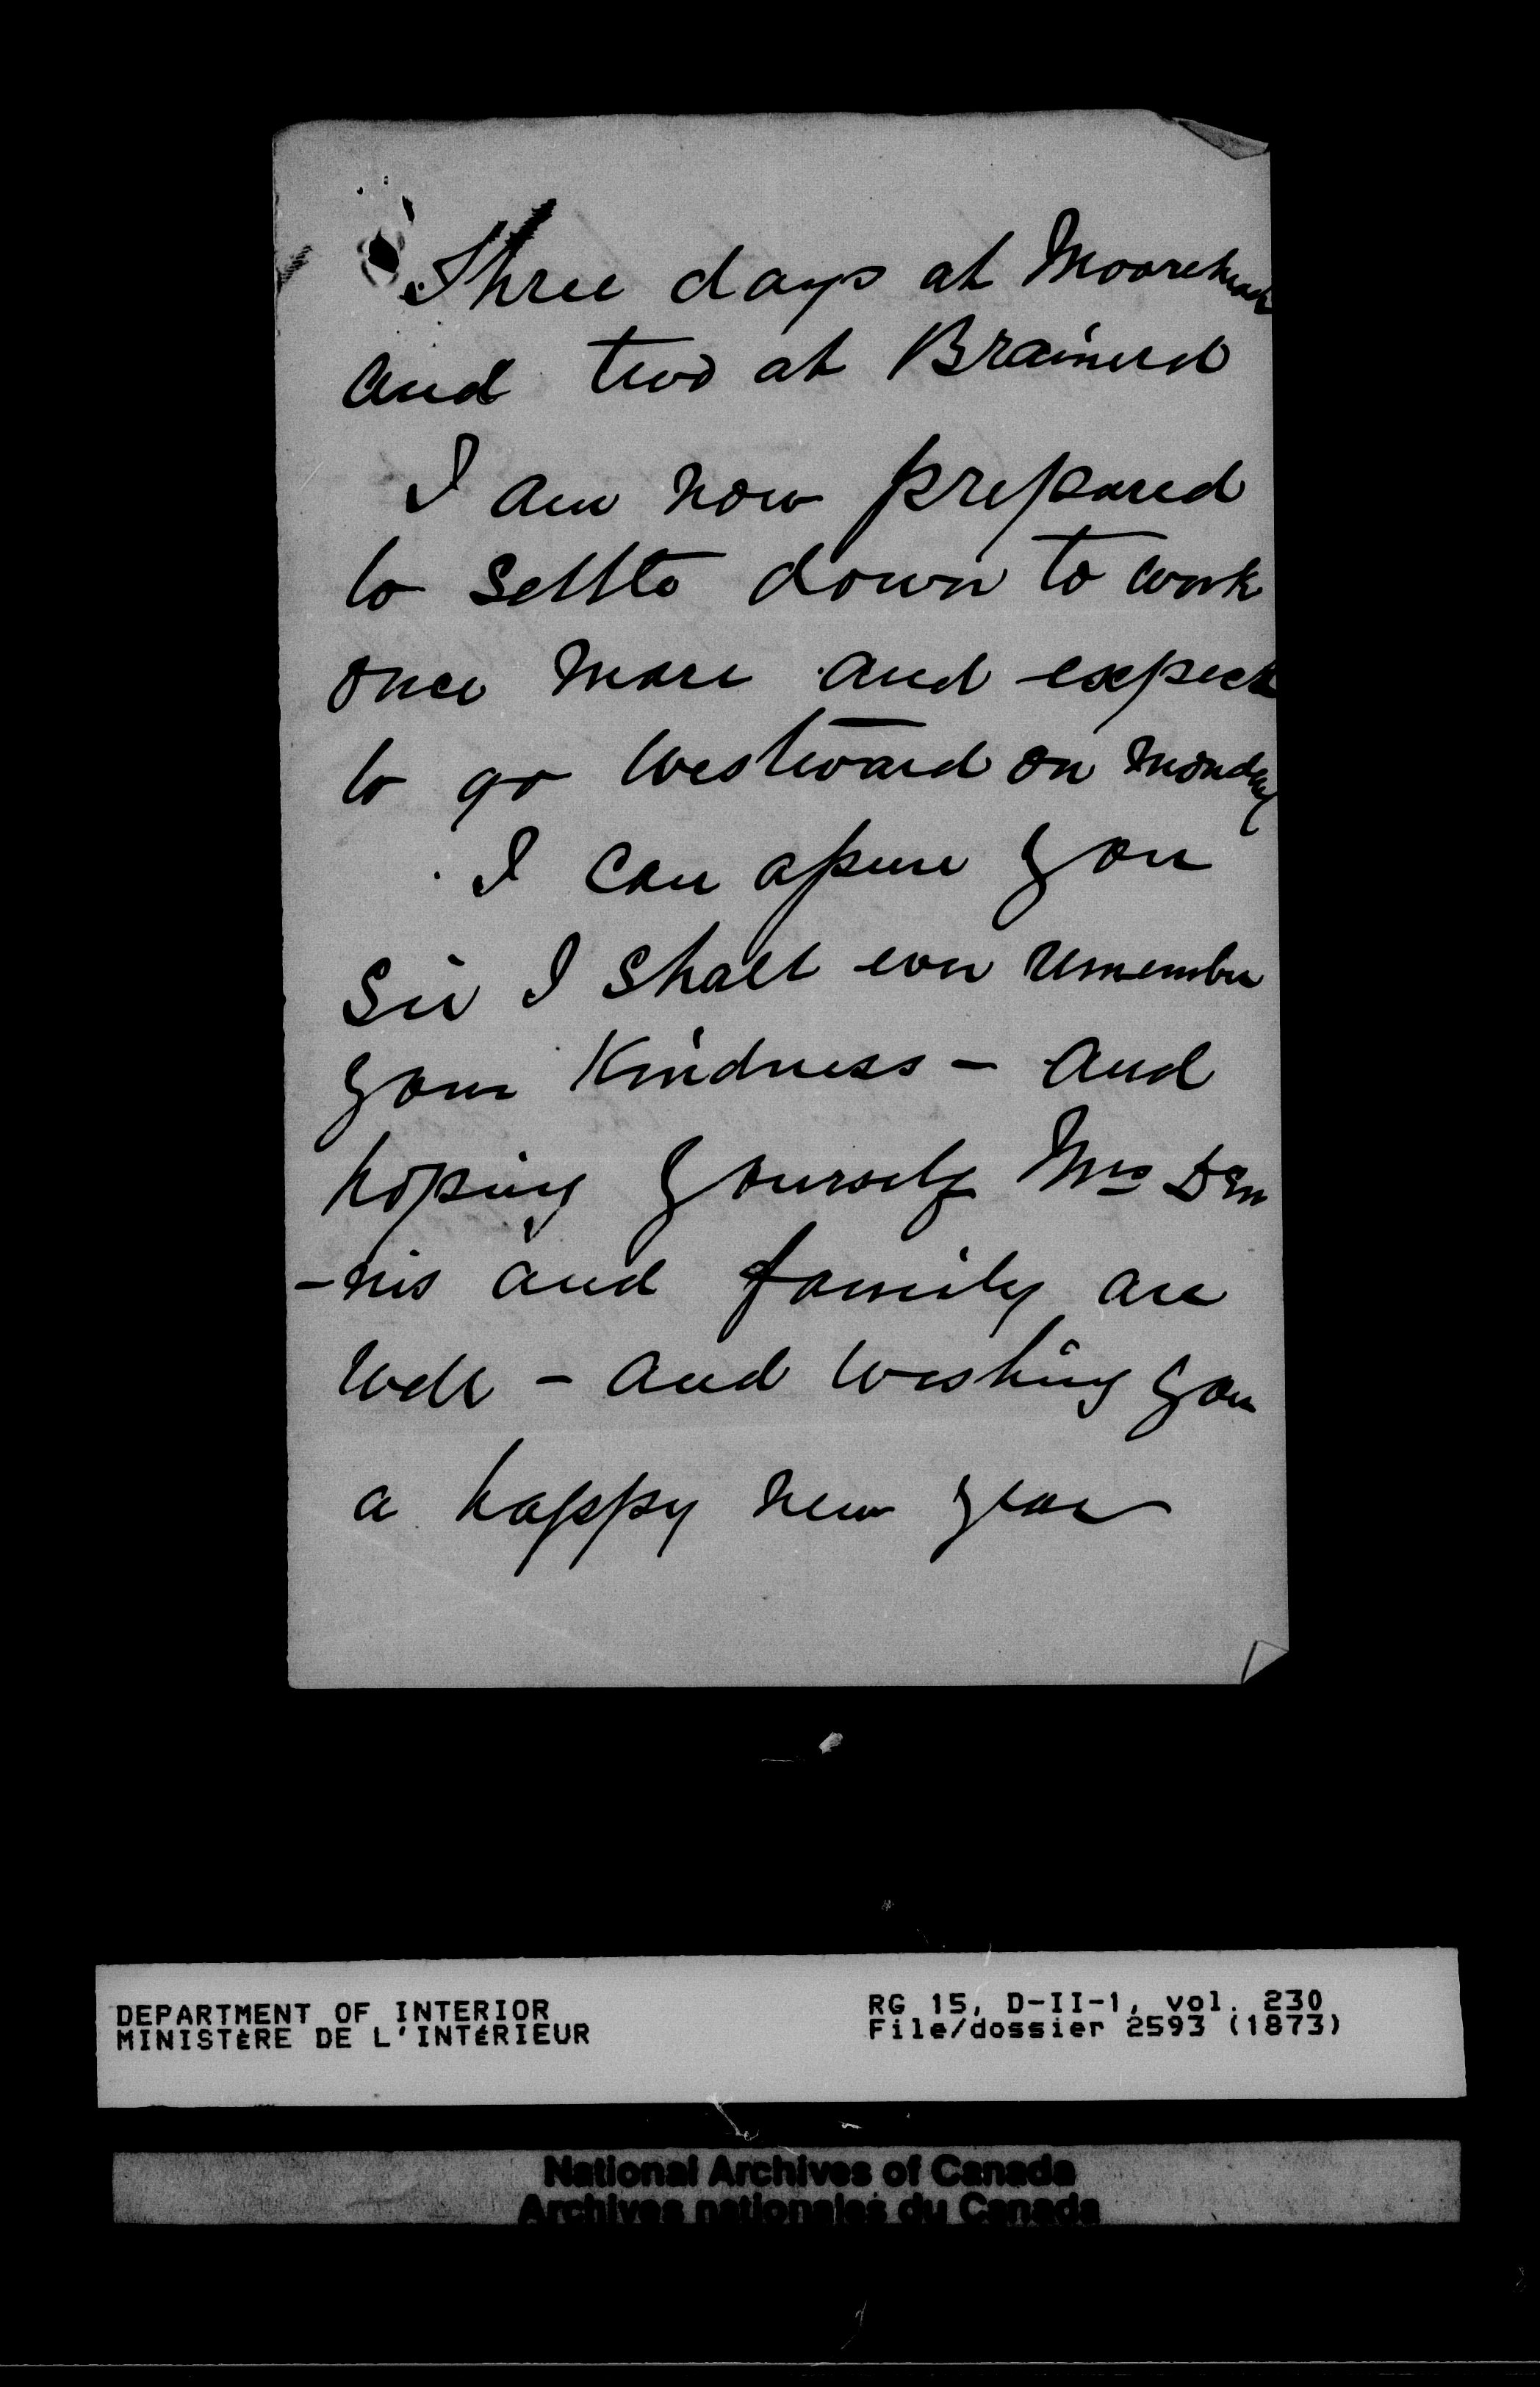 Three days at Moorehead
and two at Brainerd
I am now prepared
to settle down to work
once more and expect
to go westward on Monday
I can assure you
Sir I shall ever remember
your Kindness - and
hoping yourself Mrs Den
-nis and family are
well - and wishing you
a happy new year
DEPARTMENT OF INTERIOR
MINISTÈRE DE L'INTÉRIEUR
RG 15, D-II-1, vol. 230
File/dossier 2593 (1873)
National Archives of Canada
Archives nationales du Canada